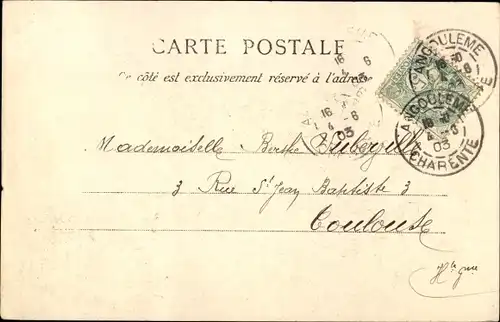 CARTE POSTALE
Ce côté est exclusivement réservé à l'adresse
ANGOULEME
CHARENTE
ANGOULEME
16 30
4 -6
03
CHARENTE
16
4 -6
03
Mademoiselle Berthe
3 Rue St Jean Baptiste 3
Toulouse
Hte Gne